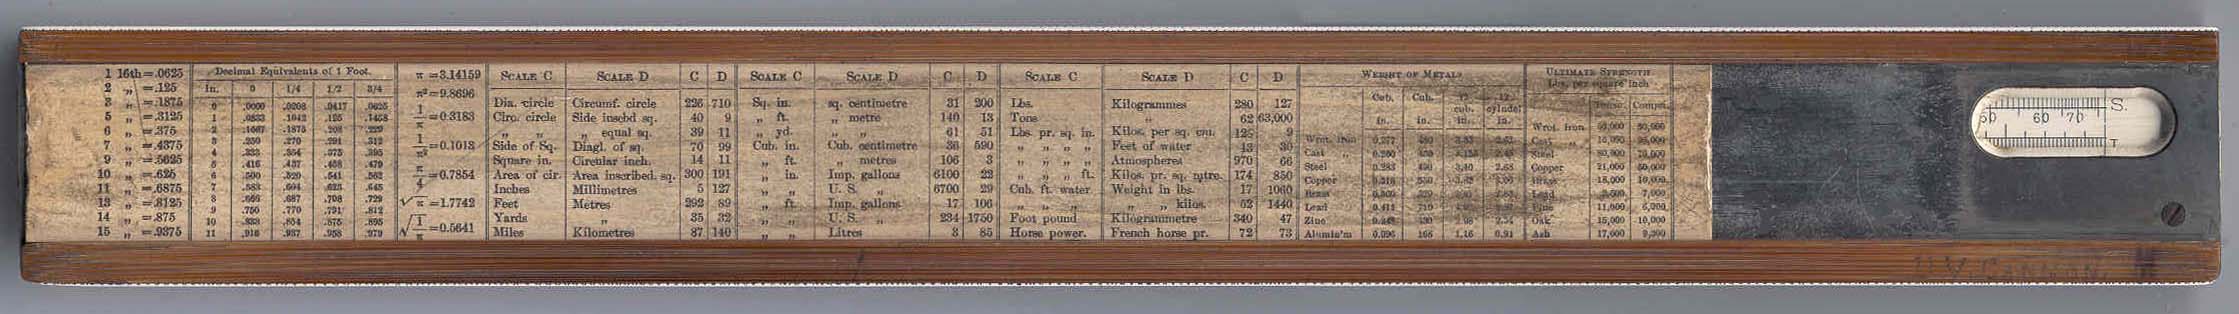 1 16th = .0625
2 „ = .125
3 „ = .1875
5 „ = .3125
6 „ = .375
7 „ = .4375
9 „ = .5625
10 „ = .625
11 „ = .6875
13 „ = .8125
14 „ = .875
15 „ = .9375
Decimal Equivalents of 1 Foot.
In. 0 1/4 1/2 3/4
0 .0000 .0208 .0417 .0625
1 .0833 .1042 .125 .1458
2 .1667 .1875 .208 .229
3 .250 .270 .291 .312
4 .333 .354 .375 .395
5 .416 .437 .458 .479
6 .500 .520 .541 .562
7 .583 .604 .625 .645
8 .666 .687 .708 .729
9 .750 .770 .791 .812
10 .833 .854 .875 .895
11 .916 .937 .958 .979
π = 3.14159
π² = 9.8696
1/π = 0.3183
1/π² = 0.1013
π/4 = 0.7854
√π = 1.7742
√1/π = 0.5641
SCALE C SCALE D C D
Dia. circle Circumf. circle 226 710
Circ. circle Side inscbd sq. 40 9
„ „ „ equal sq. 39 11
Side of Sq. Diagl. of sq. 70 99
Square in. Circular inch. 14 11
Area of cir. Area inscribed. sq. 300 191
Inches Millimetres 5 127
Feet Metres 292 89
Yards „ 35 32
Miles Kilometres 87 140
SCALE C SCALE D C D
Sq. in. sq. centimetre 31 200
„ ft. „ metre 140 13
„ yd. „ „ 61 51
Cub. in. Cub. centimetre 36 590
„ ft. „ metres 106 3
„ in. Imp. gallons 6100 22
„ „ U. S. „ 6700 29
„ ft. Imp. gallons 17 106
„ „ U. S. „ 234 1750
„ „ Litres 3 85
SCALE C SCALE D C D
Lbs. Kilogrammes 280 127
Tons „ 62 63,000
Lbs. pr. sq. in. Kilos. per sq. cm. 128 9
„ „ „ „ Feet of water 13 30
„ „ „ „ Atmospheres 970 66
„ „ „ ft. Kilos. pr. sq. mtre. 174 850
Cub. ft. water Weight in lbs. 17 1060
„ „ „ „ „ kilos. 62 1440
Foot pound Kilogrammetre 340 47
Horse power. French horse pr. 72 73
WEIGHT OF METALS
Cub. in. Cub. cub. in. cylinder in.
Wrot. iron 0.277 480
Cast „ 0.260 450
Steel 0.283 490 3.40
Copper
Brass
Lead
Zinc
Alumin'm 0.096 168 1.16 0.91
ULTIMATE STRENGTH
Lbs. per square inch
Compr.
Wrot. iron 50,000
Cast „
Steel
Copper 21,000 50,000
Brass 18,000 10,000
Lead 7,000
Pine 11,000 6,000
Oak 15,000 10,000
Ash 17,000 9,000
S.
50 60 70
T